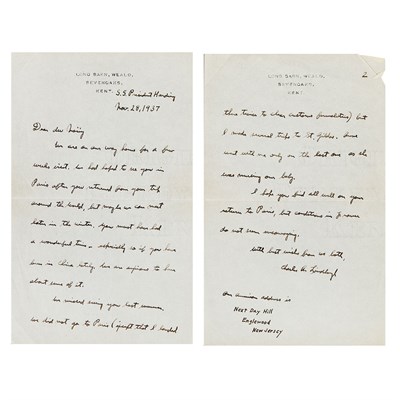 LONG BARN, WEALD,
SEVENOAKS,
KENT.
S.S. President Harding
Nov. 28, 1937
Dear
We are on our way home for a few
weeks visit. We had hoped to see you in
Paris after you returned from your trip
around the world, but maybe we can meet
later in the winter. You must have had
a wonderful time - especially so if you have
been in China lately. We are anxious to hear
about some of it.
We missed seeing you last summer.
We did not go to Paris (except that I landed
LONG BARN, WEALD,
SEVENOAKS,
KENT.
2
there twice to clear customs formalities) but
I made several trips to St. Gildas. Anne
went with me only on the last one as she
was nursing our baby.
I hope you find all well on your
return to Paris, but conditions in France
do not seem encouraging.
With best wishes from us both,
Charles A. Lindbergh
Our American address is
Next Day Hill
Englewood
New Jersey